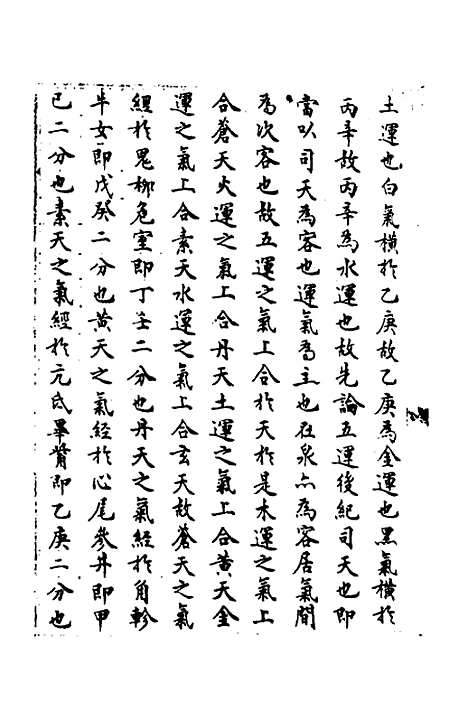 土運也白氣橫於乙庚故乙庚為金運也黑氣橫於
丙辛故丙辛為水運也故先論五運後紀司天也即
當以司天為客也運氣為主也在泉亦為客居氣間
為次客也故五運之氣上合於天於是木運之氣上
合蒼天火運之氣上合丹天土運之氣上合黃天金
運之氣上合素天水運之氣上合玄天故蒼天之氣
經於鬼柳危室即丁壬二分也丹天之氣經於角軫
牛女即戊癸二分也黃天之氣經於心尾參井即甲
已二分也素天之氣經於亢氐畢觜即乙庚二分也